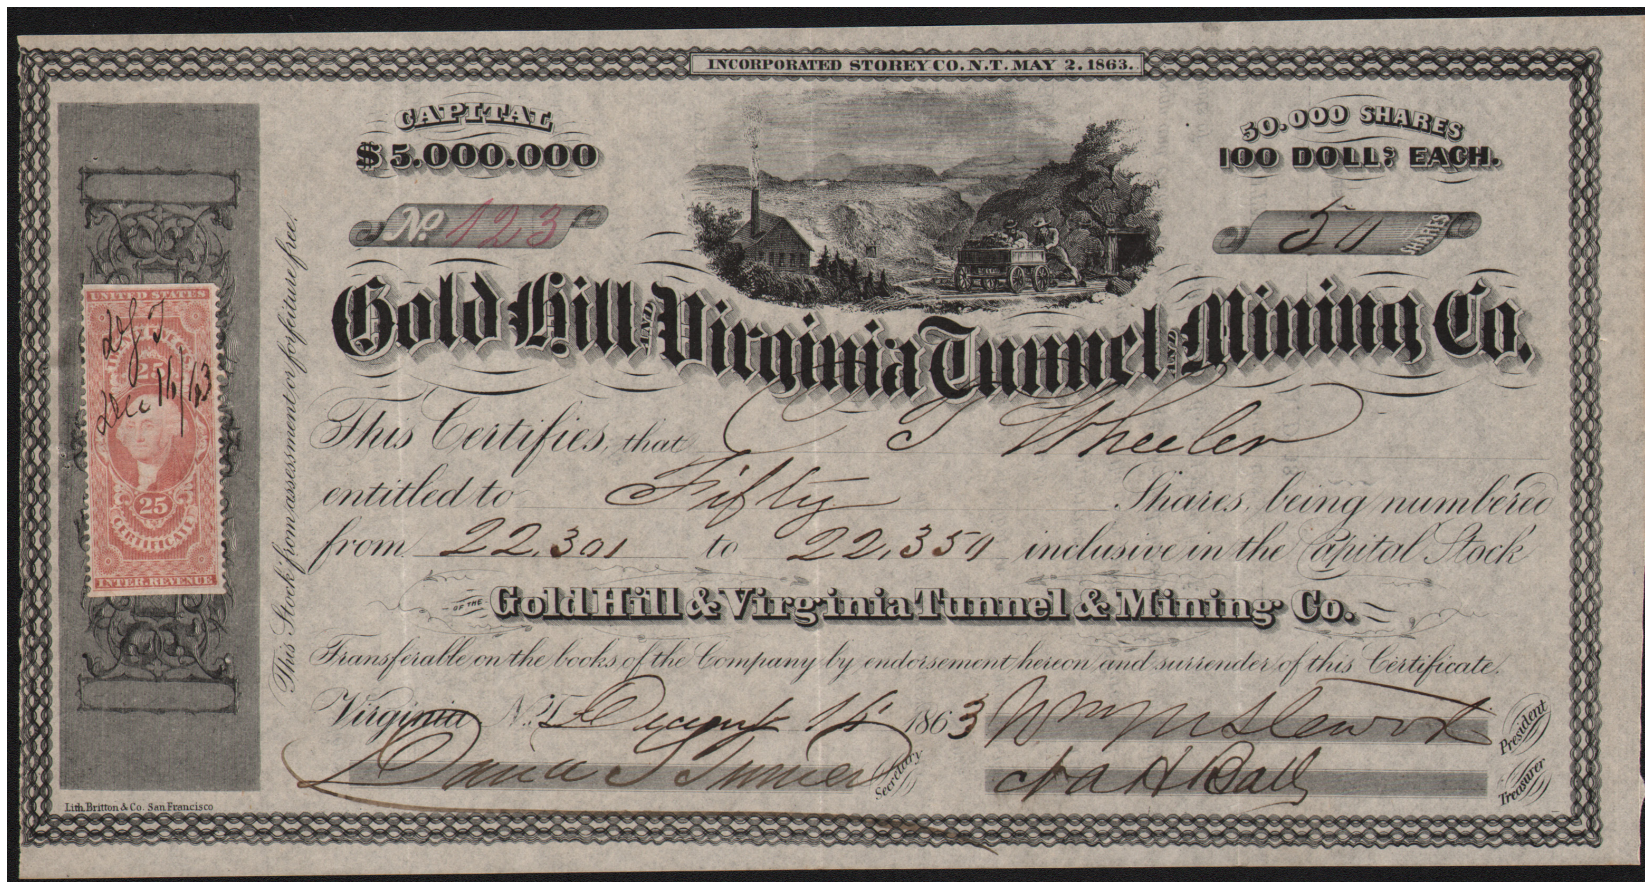 INCORPORATED STOREY CO. N.T. MAY 2. 1863.
CAPITAL
$5.000.000
50.000 SHARES
100 DOLLS EACH.
No. 123
50 SHARES
Gold Hill AND Virginia Tunnel AND Mining Co.
This Certifies, that C T Wheeler
entitled to Fifty Shares, being numbered
from 22,301 to 22,350 inclusive in the Capital Stock
OF THE Gold Hill & Virginia Tunnel & Mining Co.
Transferable on the books of the Company by endorsement hereon and surrender of this Certificate.
Virginia N.T. Decemb 16 1863 Wm M Stewart President
Secretary Ball Treasurer
This Stock from assessment or forfeiture free.
UNITED STATES
25
Dec 16/63
25
CERTIFICATE
INTER. REVENUE
Lith. Britton & Co. San Francisco